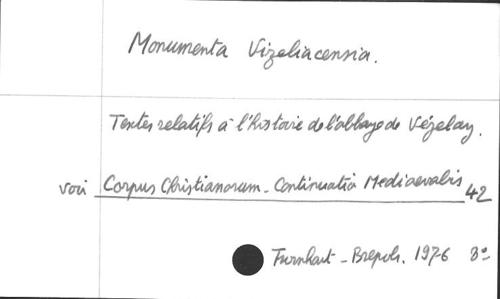 Monumenta Vizeliacensia.
Textes relatifs à l'histoire de l'abbaye de Vézelay.
voir Corpus Christianorum - Continuatio Mediaevalis 42
Turnhout - Brepols. 1976 8º